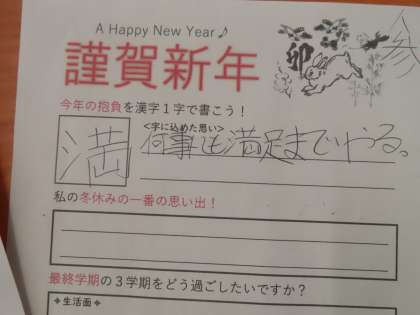 A Happy New Year♪
謹賀新年
卯
参
今年の抱負を漢字1字で書こう！
<字に込めた思い>
満
何事も満足までやる。
私の冬休みの一番の思い出！
最終学期の3学期をどう過ごしたいですか？
✧生活面✧